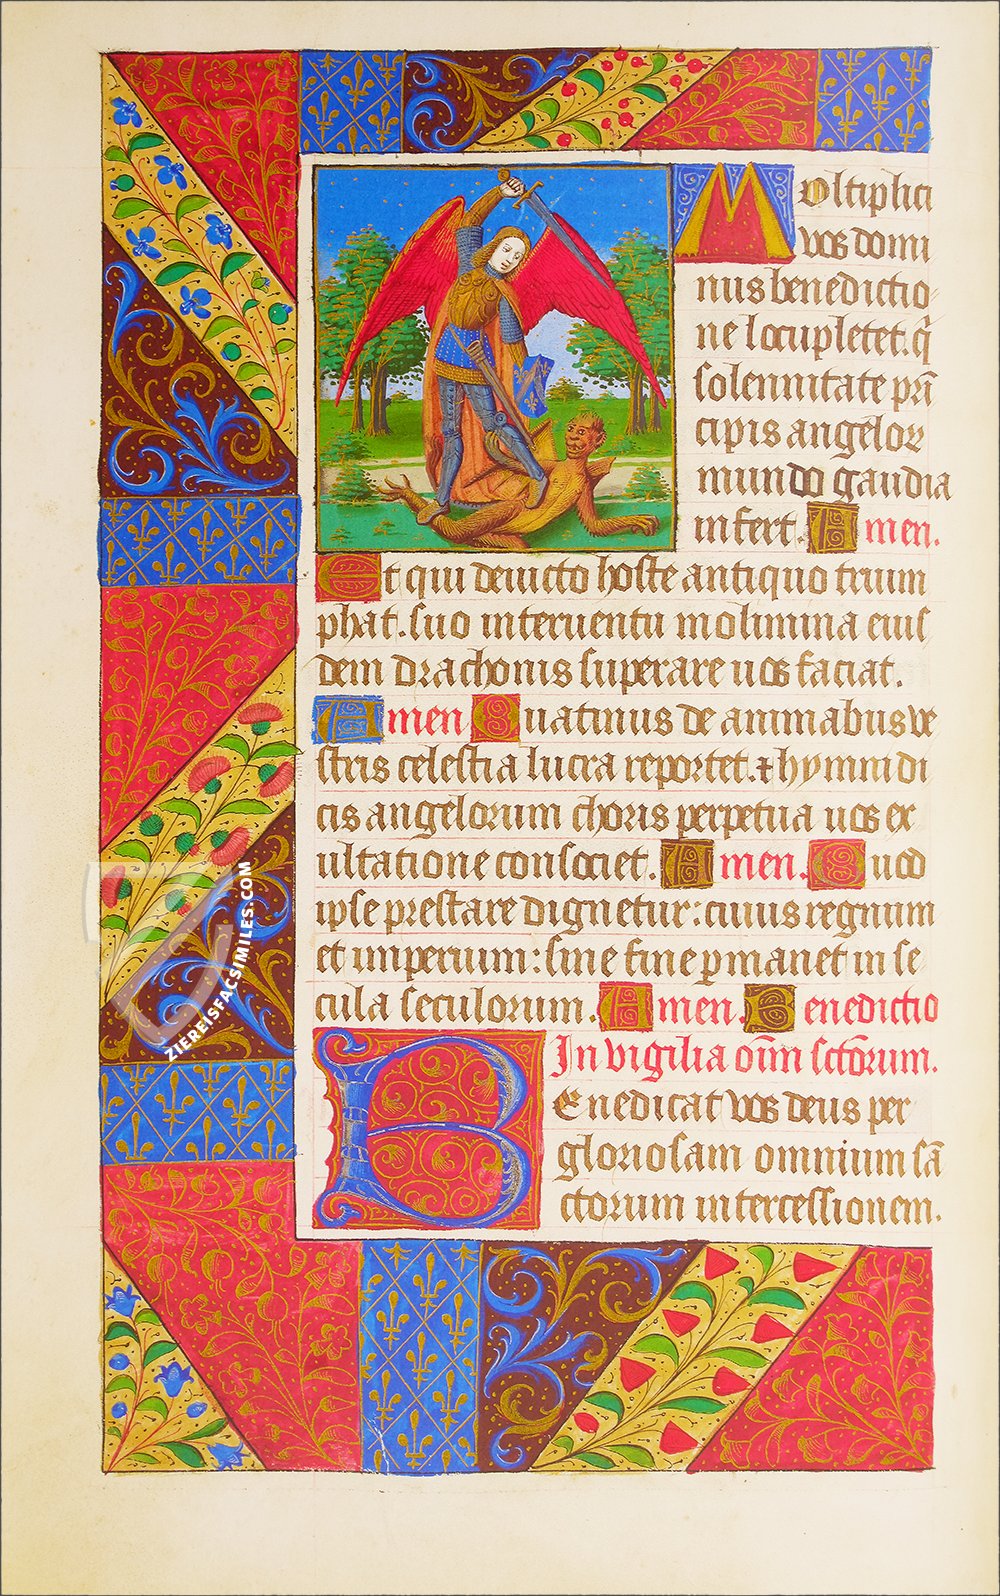 Moltiplici
vos domi
nus benedictio
ne locupletet. q̃
solennitate prī
cipis angelorꝝ
mundo gaudia
infert. Amen.
Et qui deuicto hoste antiquo trium
phat. suo interuentu molimina eius
dem drachonis superare uos faciat.
Amen Quatinus de animabus ve
stris celestia lucra reportet. ⁊ hymnidi
cis angelorum choris perpetua uos ex
ultatione consociet. Amen. Quod
ipse prestare dignetur: cuius regnum
et imperium: sine fine ꝑmanet in se
cula seculorum. Amen. Benedictio
In vigilia oim̄ sctōrum.
Benedicat vos deus per
gloriosam omnium sā
ctorum intercessionem.
ZIEREISFACSIMILES.COM